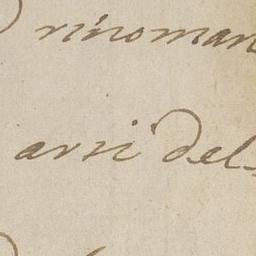 rinoman
arsi del-